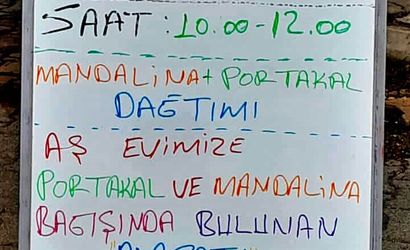 SAAT : 10.00-12.00
MANDALİNA + PORTAKAL
DAĞTIMI
AŞ EVİMİZE
PORTAKAL VE MANDALİNA
BAGIŞINDA BULUNAN